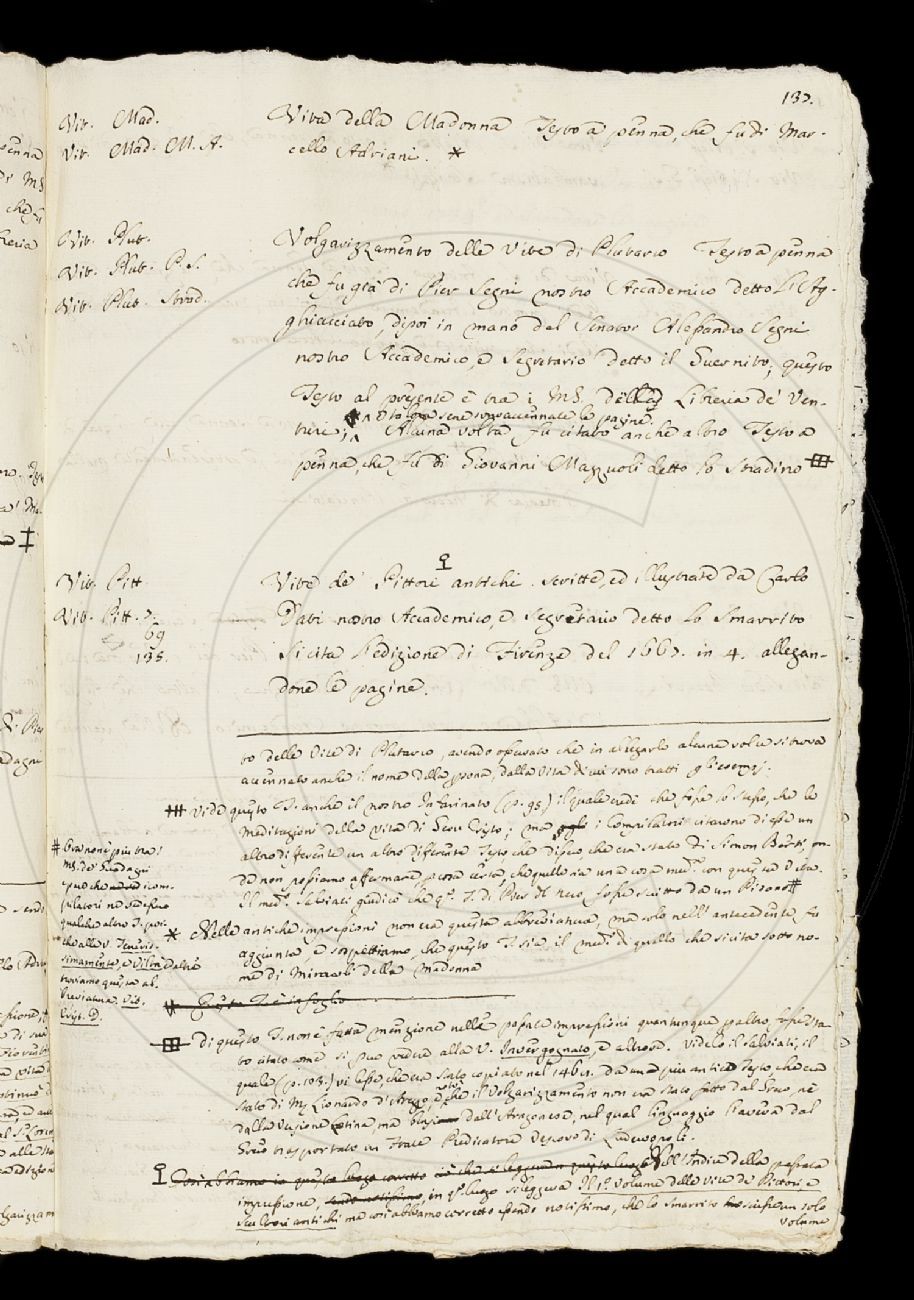 137.
Vit. Mad.
Vit. Mad. M. A.
Vita della Madonna Testo a penna, che fu di Mar-
cello Adriani. *
Vit. Plut.
Vit. Plut. P. S.
Vit. Plut. Strad.
Volgarizzamento delle Vite di Plutarco Testo a penna
che fu già di Pier Segni nostro Accademico detto L'Ag-
ghiacciato, dipoi in mano del Senator Alessandro Segni
nostro Accademico, e Segretario detto il Guernito; questo
Testo al presente è tra i MS. della Libreria de' Ven-
turi; e talora sene sono accennate le pagine.
Alcuna volta fu citato anche altro Testo a
penna, che fu di Giovanni Mazzuoli detto lo Stradino
Vit. Pitt.
Vit. Pitt. 7.
69
135.
Vite de' Pittori antichi scritte, ed illustrate da Carlo
Dati nostro Accademico, e Segretario detto lo Smarrito
Si cita l'edizione di Firenze del 1667. in 4. allegan-
done le pagine.
to delle Vite di Plutarco, avendo operato che in allegarlo alcune volte si trova
accennato anche il nome della persona, dalla Vita di cui sono tratti gli esempj.
Vide questo T. anche il nostro Infarinato (p. 95.) il quale credè che fosse lo stesso, che le
Meditazioni della Vita di Gesù Cristo; ma i Compilatori citarono di esse un
altro differente Testo che dissero, che era stato di Simon Berti, on-
de non possiamo affermare, per cosa certa, che quello sia una cosa med. con questa Vita.
Il med. Salviati giudicò che q. T. di Pier del Nero, fosse scritto da un Pisano #
# Ora non è più tra i
MS. de' Guadagni
qualche altro T. poi-
che alla V. Teneris-
simamente, e altre
troviamo questa ab-
breviatura. Vit.
Crist. D.
* Nelle antiche impressioni non era questa abbreviatura, ma solo nell'antecedente fu
aggiunta, e sospettiamo, che questo T. sia il med. di quello che si cita sotto no-
me di Miracoli della Madonna
Questo T. è in foglio
di questo T. non è fatta menzione nelle passate impressioni quantunque peraltro fosse sta-
to citato come si può vedere alla V. Invergognato, e altrove. Videlo il Salviati, il
quale (p. 103.) vi lesse, che era stato copiato nel 1461. da un più antico Testo, che era
stato di M. Lionardo d'Arezzo, e che il Volgarizzamento non era stato fatto dal Greco, nè
dalla Versione Latina, ma dall'Aragonese, nel qual linguaggio l'aveva dal
Greco trasportato un Frate Predicatore Vescovo di Ludervopoli.
Così abbiamo in questo luogo corretto Nell'Indice della passata
impressione, in q. luogo si leggeva Il p. Volume delle Vite de' Pittori e
Scultori antichi ma così abbiamo corretto essendo notissimo, che lo Smarrito scrisse un solo
volume